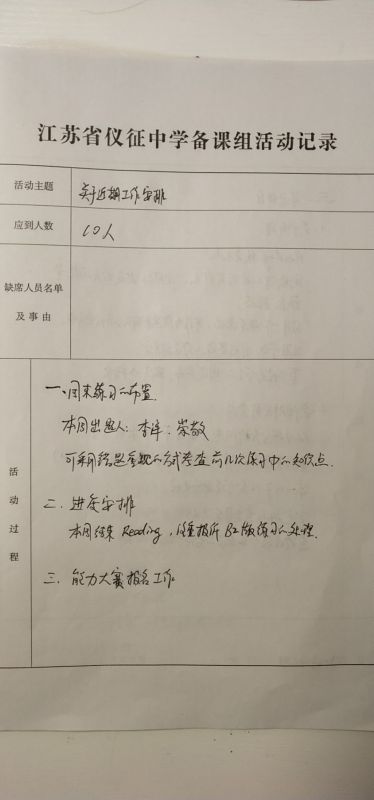 江苏省仪征中学备课组活动记录
活动主题 关于近期工作安排
应到人数 10人
缺席人员名单
及事由
活动过程
一、周末练习的布置
本周出题人：李洋：崇敬
可采用错题重现的方式考查前几次练习中的知识点.
二、进度安排
本周结束 Reading，报纸B2版练习的处理.
三、能力大赛报名工作